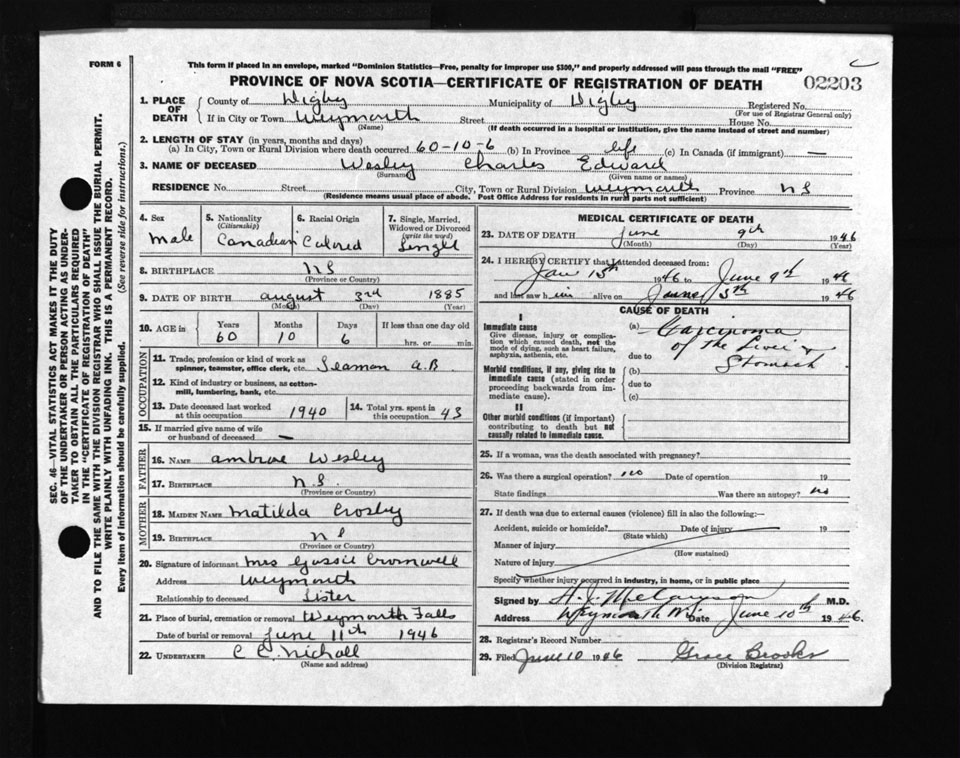 This form if placed in an envelope, marked "Dominion Statistics—Free, penalty for improper use $300," and properly addressed will pass through the mail "FREE"
FORM 6
PROVINCE OF NOVA SCOTIA—CERTIFICATE OF REGISTRATION OF DEATH
02203
SEC. 46—VITAL STATISTICS ACT MAKES IT THE DUTY
OF THE UNDERTAKER OR PERSON ACTING AS UNDER-
TAKER TO OBTAIN ALL THE PARTICULARS REQUIRED
IN THE "CERTIFICATE OF REGISTRATION OF DEATH"
AND TO FILE THE SAME WITH THE DIVISION REGISTRAR WHO SHALL ISSUE THE BURIAL PERMIT.
WRITE PLAINLY WITH UNFADING INK. THIS IS A PERMANENT RECORD.
Every item of information should be carefully supplied. (See reverse side for instructions.)
1. PLACE OF DEATH
County of Digby Municipality of Digby Registered No.
(For use of Registrar General only)
If in City or Town Weymouth Street House No.
(Name) (If death occurred in a hospital or institution, give the name instead of street and number)
2. LENGTH OF STAY (in years, months and days)
(a) In City, Town or Rural Division where death occurred 60-10-6 (b) In Province life (c) In Canada (if immigrant) —
3. NAME OF DECEASED Wesley Charles Edward
(Surname) (Given name or names)
RESIDENCE No. Street City, Town or Rural Division Weymouth Province N S
(Residence means usual place of abode. Post Office Address for residents in rural parts not sufficient)
4. Sex
Male
5. Nationality
(Citizenship)
Canadian
6. Racial Origin
Colored
7. Single, Married,
Widowed or Divorced
(write the word)
Single
8. BIRTHPLACE N S
(Province or Country)
9. DATE OF BIRTH August 3rd 1885
(Month) (Day) (Year)
10. AGE in
Years Months Days If less than one day old
60 10 6 hrs. or min.
OCCUPATION
11. Trade, profession or kind of work as
spinner, teamster, office clerk, etc. Seaman A.B.
12. Kind of industry or business, as cotton-
mill, lumbering, bank, etc.
13. Date deceased last worked
at this occupation 1940
14. Total yrs. spent in
this occupation 43
15. If married give name of wife
or husband of deceased —
FATHER
16. NAME Ambrose Wesley
17. BIRTHPLACE N.S.
(Province or Country)
MOTHER
18. MAIDEN NAME Matilda Crosby
19. BIRTHPLACE N S
(Province or Country)
20. Signature of informant Mrs Gussie Cromwell
Address Weymouth
Relationship to deceased Sister
21. Place of burial, cremation or removal Weymouth Falls
Date of burial or removal June 11th 1946
22. UNDERTAKER C C. Nichall
(Name and address)
MEDICAL CERTIFICATE OF DEATH
23. DATE OF DEATH June 9th 1946
(Month) (Day) (Year)
24. I HEREBY CERTIFY that I attended deceased from:
Jan 15th 1946 to June 9th 1946
and last saw him alive on June 5th 1946
CAUSE OF DEATH
I
Immediate cause
Give disease, injury or complica-
tion which caused death, not the
mode of dying, such as heart failure,
asphyxia, asthenia, etc.
(a) Carcinoma
of the Liver &
due to Stomach
Morbid conditions, if any, giving rise to
immediate cause (stated in order
proceeding backwards from im-
mediate cause).
(b)
due to
(c)
II
Other morbid conditions (if important)
contributing to death but not
causally related to immediate cause.
25. If a woman, was the death associated with pregnancy?
26. Was there a surgical operation? no Date of operation 19
State findings Was there an autopsy? no
27. If death was due to external causes (violence) fill in also the following:—
Accident, suicide or homicide? Date of injury 19
(State which)
Manner of injury
(How sustained)
Nature of injury
Specify whether injury occurred in industry, in home, or in public place
Signed by H. J. M.D.
Weymouth Date June 10th 1946.
28. Registrar's Record Number
29. Filed June 10 1946 Grace Brooks
(Division Registrar)